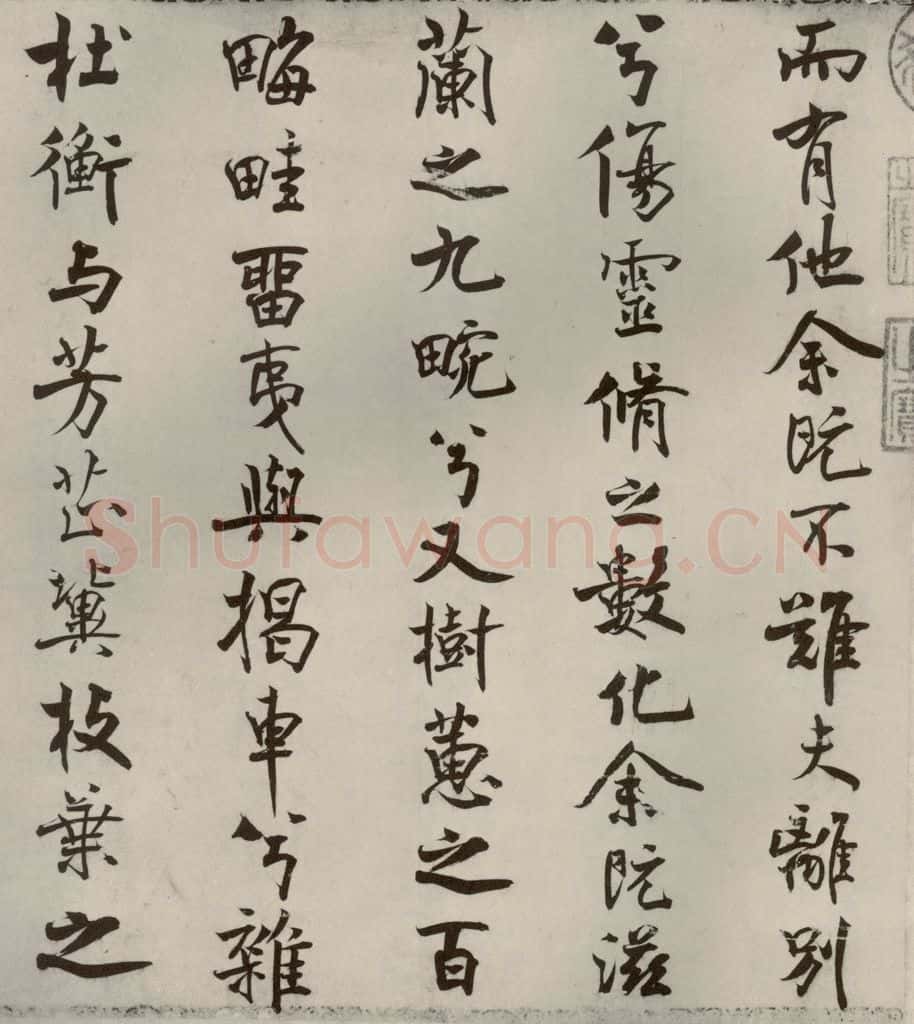 而有他余既不難夫離別
兮傷靈脩之數化余既滋
蘭之九畹兮又樹蕙之百
畮畦畱夷與揭車兮雜
杜衡与芳芷兾枝葉之
Shufawang.CN